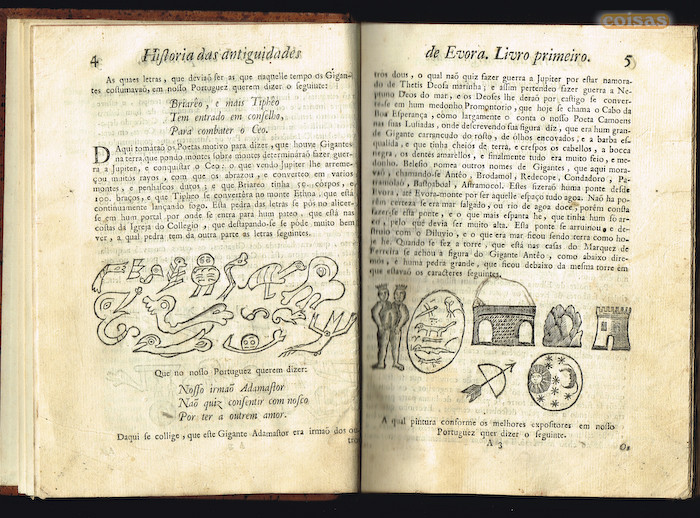 eoisas
4 Hiſtoria das antiguidades
As quaes letras, que deviaõ ſer as que naquelle tempo os Gigan-
tes coſtumavaõ, em noſſo Portuguez querem dizer o ſeguinte:
Briarèo, e mais Tiphèo
Tem entrado em conſelho,
Para combater o Ceo.
DAqui tomáraõ os Poetas motivo para dizer, que houve Gigantes
na terra, que pondo montes ſobre montes determináraõ fazer guer-
ra a Jupiter, e conquiſtar o Ceo: o que vendo Jupiter lhe arreme-
çou muitos rayos, com que os abrazou, e converteo em varios
montes, e penhaſcos duros; e que Briarèo tinha 50. corpos, e
100. braços, e que Tiphèo ſe convertèra no monte Ethna, que eſtá
continuamente lançando logo. Eſta pedra das letras ſe pôs no alicer-
ſe em hum portal por onde ſe entra para hum pateo que eſtá nas
coſtas da Igreja do Collegio, que deſtapando-ſe ſe póde muito bem
ver, a qual pedra tem da outra parte as letras ſeguintes.
Que no noſſo Portuguez querem dizer:
Noſſo irmaõ Adamaſtor
Naõ quiz conſentir com noſco
Por ter a outrem amor.
Daqui ſe collige, que eſte Gigante Adamaſtor era irmaõ dos ou-
tros
de Evora. Livro primeiro. 5
tros dous, o qual naõ quiz fazer guerra a Jupiter por eſtar namora-
do de Thetis Deoſa marinha; e aſſim pertendeo fazer guerra a Ne-
ptuno Deos do mar, e os Deoſes lhe deraõ por caſtigo ſe conver-
teſſe em hum medonho Promontorio, que hoje ſe chama o Cabo da
Boa Eſperança, como largamente o conta o noſſo Poeta Camoens
nas ſuas Luſiadas, onde deſcrevendo ſua figura diz, que era hum gran-
de Gigante carrancudo do roſto, de olhos encovados; e a barba eſ-
qualida, e que tinha cheios de terra, e creſpos os cabellos, a bocca
negra, os dentes amarellos, e finalmente tudo era muito feio, e me-
donho. Beleſio nomea outros nomes de Gigantes, que aqui mora-
vaõ, chamando-ſe Antêo, Brodamol, Redecope, Contadoro, Pa-
Baſtoxbaol, Aſtramocol. Eſtes fizeraõ huma ponte deſde
até Evora-monte por ſer aquelle eſpaço tudo agoa. Naõ ha po-
rém certeza ſe era mar ſalgado, ou rio de agoa doce, porém conſta
fazer-ſe eſta ponte, e o que mais eſpanta he, que tinha hum ſo ar-
co, pelo qué devia ſer muito alta. Eſta ponte ſe arruinou, e de-
ſtruio com o Diluvio, e o que era mar ficou ſendo terra como ho-
je he. Quando ſe fez a torre, que eſtá nas caſas do Marquez de
Ferreira ſe achou a figura do Gigante Antêo, como abaixo dire-
mos, e huma pedra grande, que ficou debaixo da meſma torre em
que eſtavaõ os caracteres ſeguintes.
A qual pintura conforme os melhores expoſitores em noſſo
Portuguez quer dizer o ſeguinte.
A 3